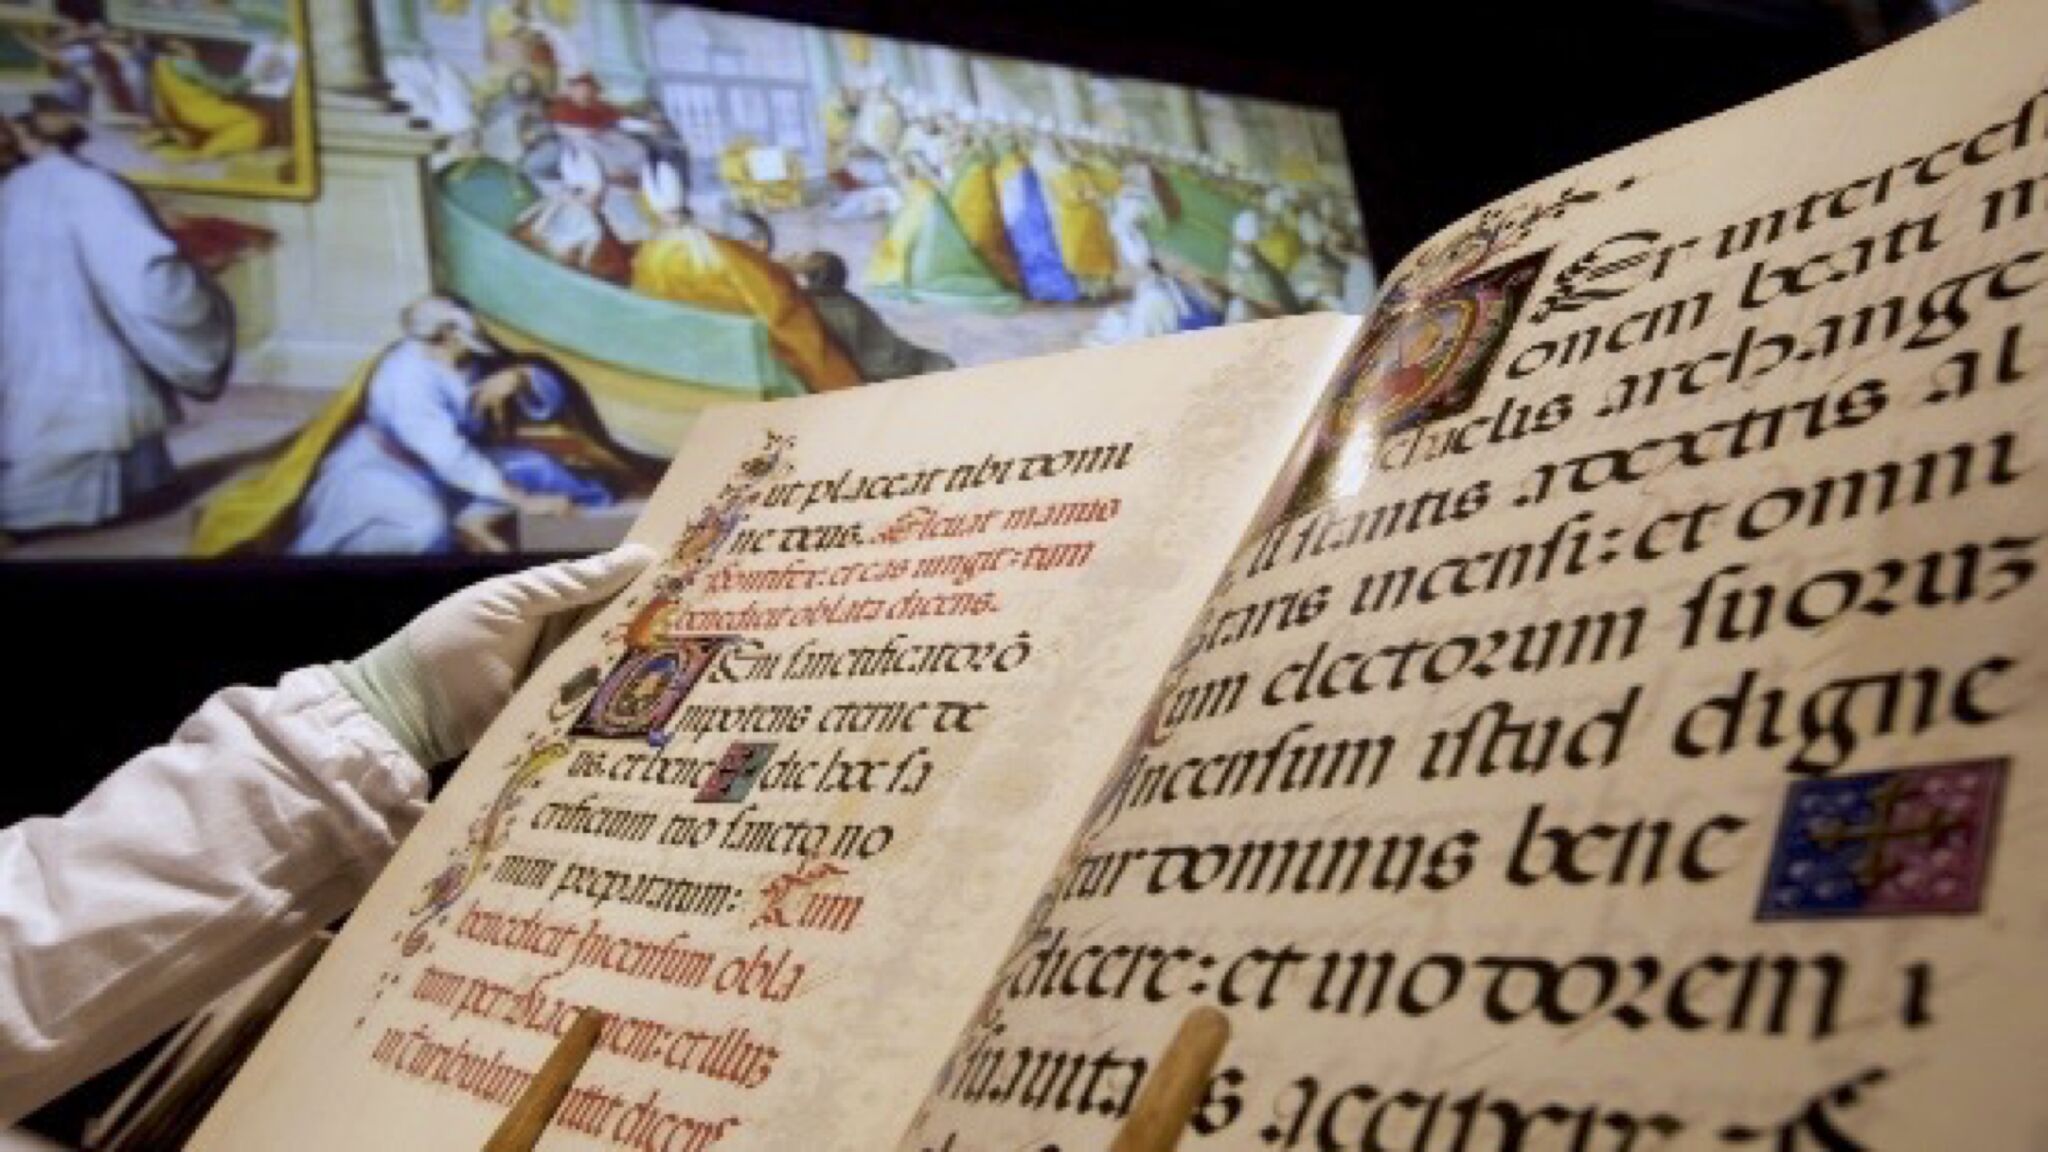 ut placeat tibi domi
ne deus. Sicut manus
benedicit oblata dicens.
Veni sanctificator õ
nipotens eterne de
us. et bene ✠ dic hoc sa
crificium tuo sancto no
mini preparatum: Cum
benedicit Incensum obla
tum per Diaconem: et illud
in Turibulum mittit dicens
Per intercessi
onem beati m
chaelis archange
li stantis a dextris al
taris incensi: et omni
um electorum suoruz
incensum istud digne
tur dominus bene ✠
dicere: et in odorem
suauitatis accipere